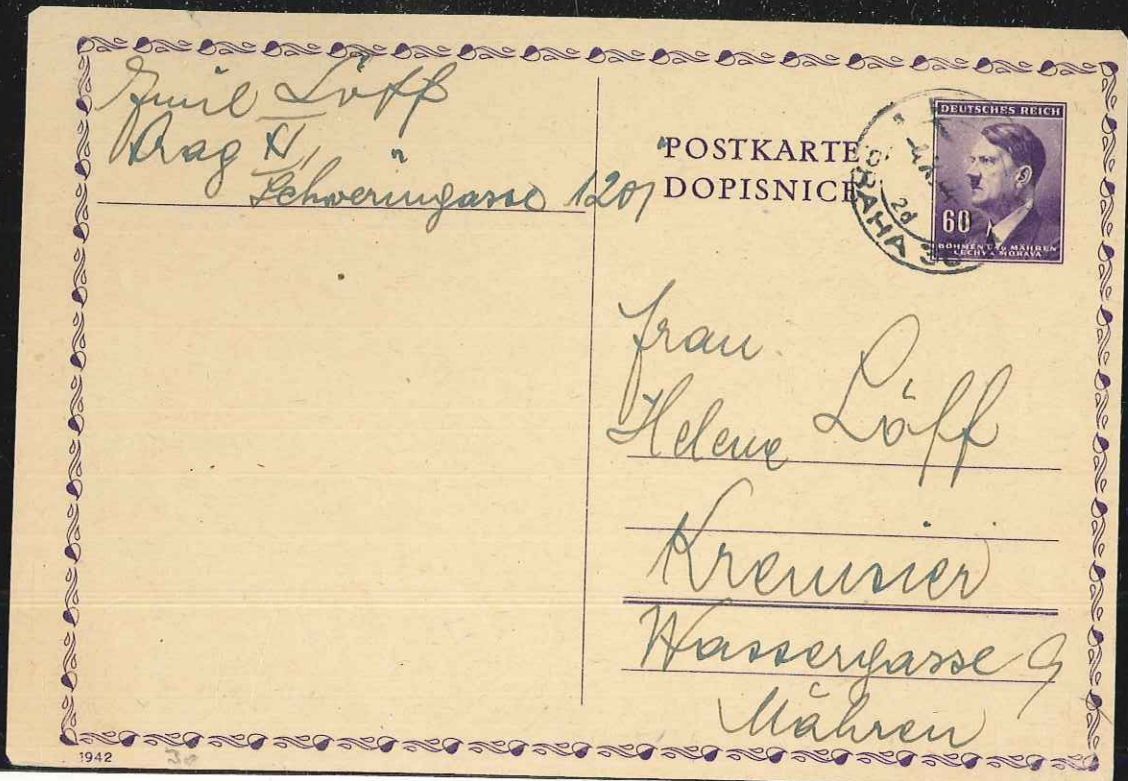 Emil Löff
Prag XI,
Schweringasse 1201
POSTKARTE
DOPISNICE
DEUTSCHES REICH
60
BÖHMEN u. MÄHREN
ČECHY a MORAVA
PRAHA 3
2d
Frau
Helene Löff
Kremsier
Wassergasse 9
Mähren
1942